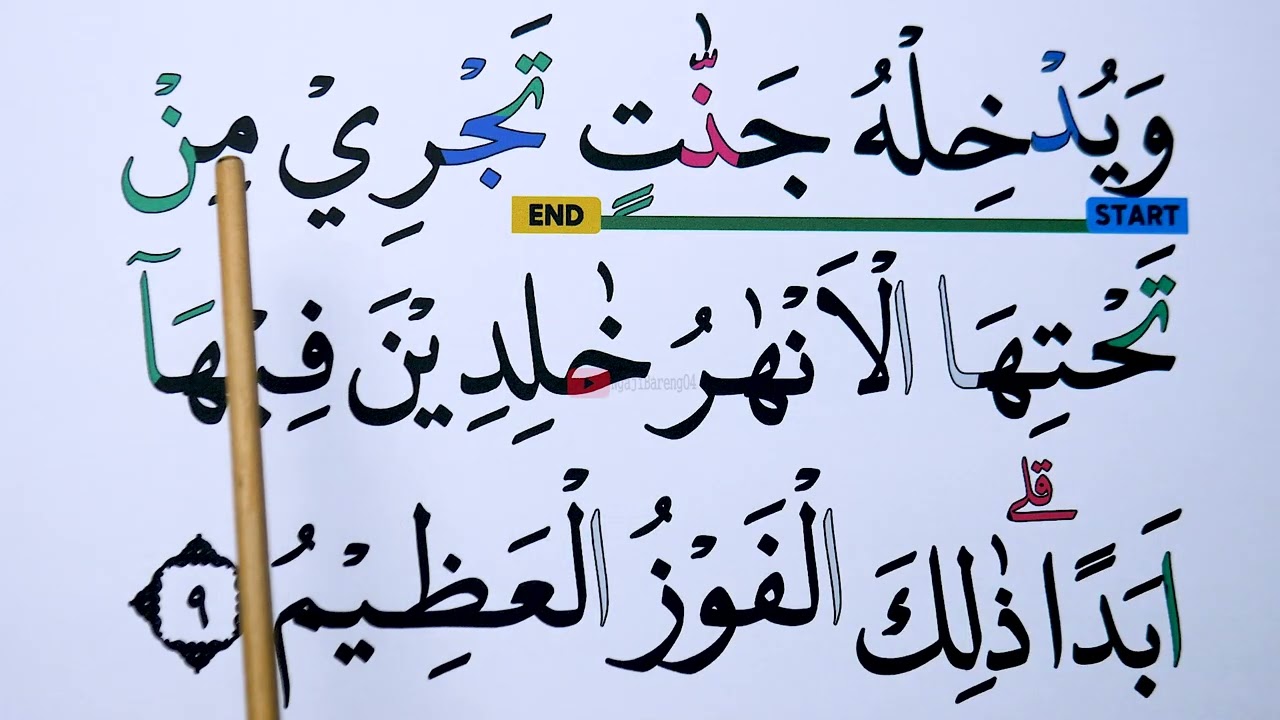 وَيُدْخِلْهُ جَنّٰتٍ تَجْرِيْ مِنْ
END START
تَحْتِهَا الْاَنْهٰرُ خٰلِدِيْنَ فِيْهَآ
NgajiBareng04
قلے
اَبَدًا ذٰلِكَ الْفَوْزُ الْعَظِيْمُ ٩